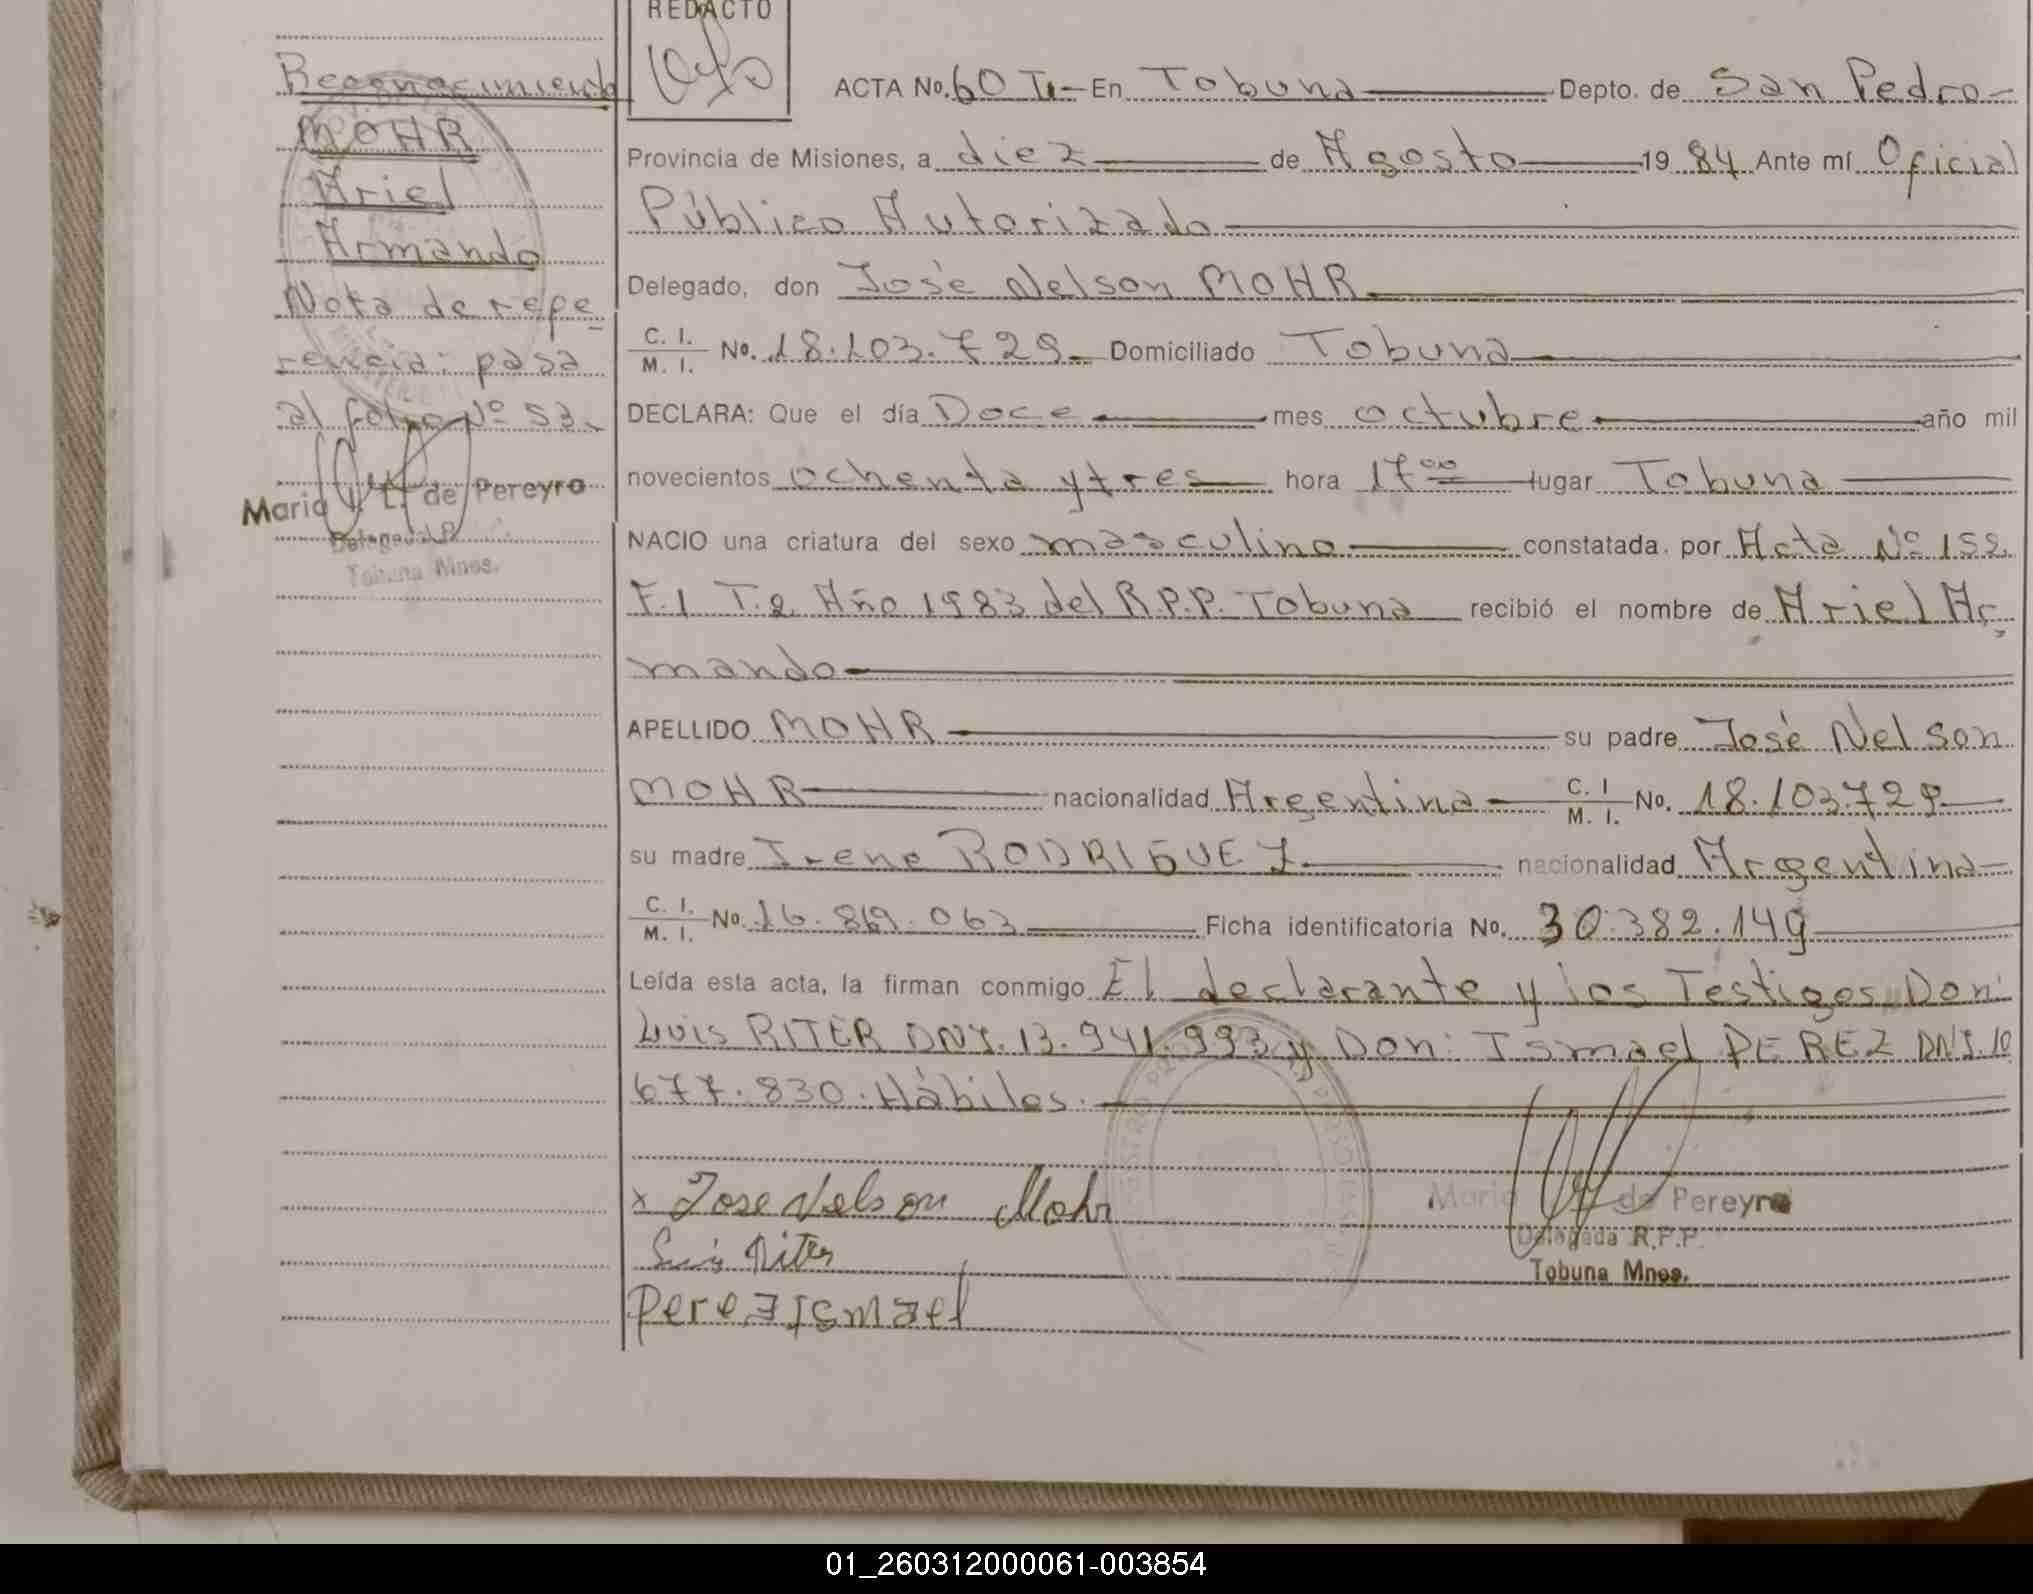 REDACTO
Recognocimiento
MOHR
Ariel
Armando
Nota de refe
rencia: pasa
al folio Nº 53.
Maria L. de Pereyra
Delegada R.P.
Tobuna Mnes.
ACTA No. 60 T1 - En Tobuna Depto. de San Pedro -
Provincia de Misiones, a diez de Agosto 19 84 Ante mí Oficial
Público Autorizado
Delegado, don José Nelson MOHR
C. I. M. I. No. 18.103.729. Domiciliado Tobuna
DECLARA: Que el día Doce mes octubre año mil
novecientos ochenta y tres hora 17 00 lugar Tobuna
NACIO una criatura del sexo masculino constatada por Acta Nº 155.
F.1 T.2 Año 1983 del R.P.P. Tobuna recibió el nombre de Ariel Ar
mando
APELLIDO MOHR su padre José Nelson
MOHR nacionalidad Argentina C. I M. I. No. 18.103.729
su madre Irene RODRIGUEZ nacionalidad Argentina
C. I. M. I. No. 16.869.063 Ficha identificatoria No. 30.382.149
Leída esta acta, la firman conmigo El declarante y los Testigos Don:
Luis RITER DNI. 13.941.993 y Don: Ismael PEREZ DNI. 10
677.830. Hábiles.
x Jose Nelson Mohr
Luis Riter
Perez Ismael
Maria de Pereyra
Delegada R.P.P.
Tobuna Mnes.
01_260312000061-003854